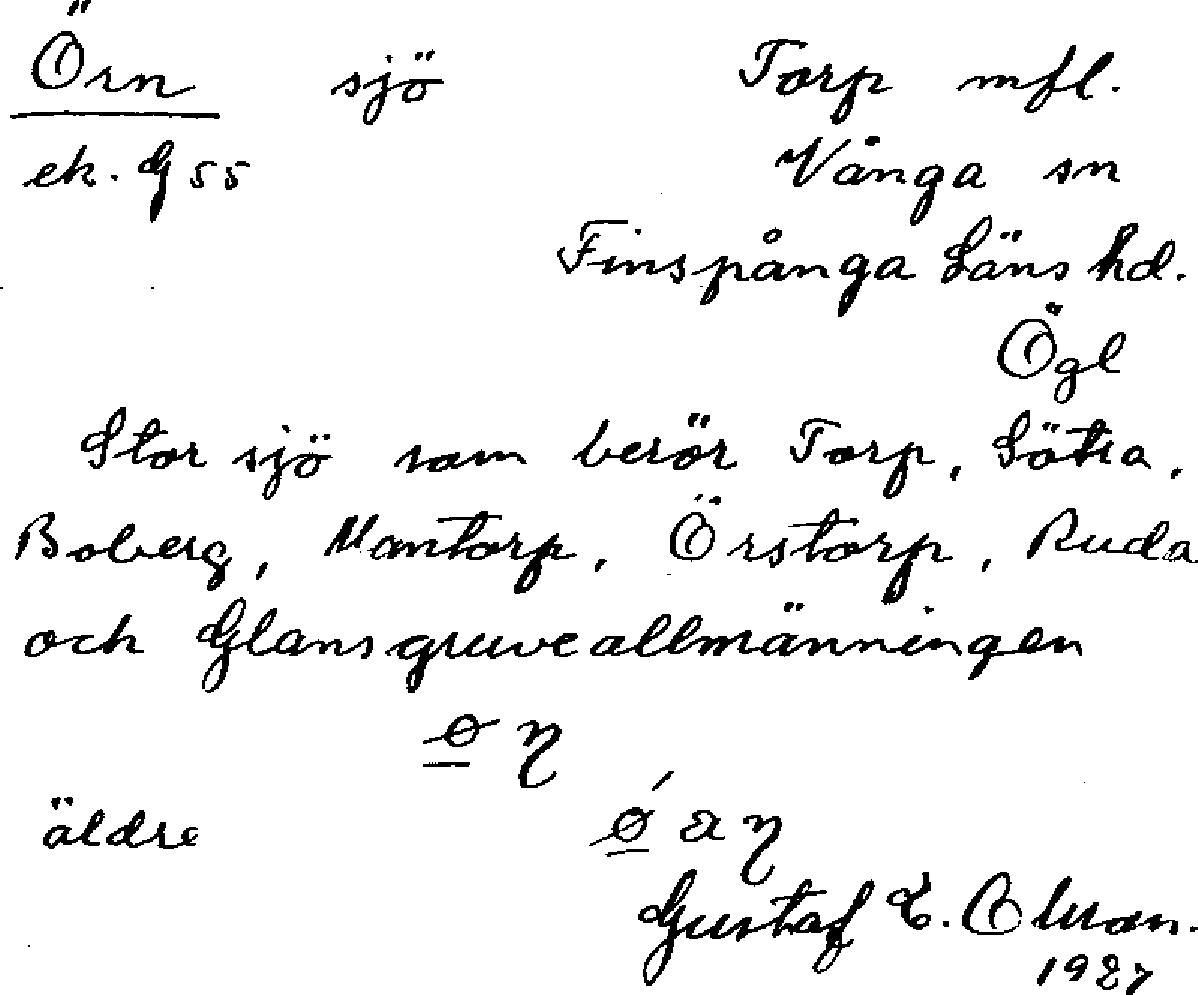 Örn sjö Torp mfl.
ek. G 55 Vånga sn
Finspånga Läns hd.
Ögl
Stor sjö som berör Torp, Sätra,
Boberg, Mantorp, Örstorp, Ruda
och Glansgruveallmänningen
äldre
Gustaf E.
1927